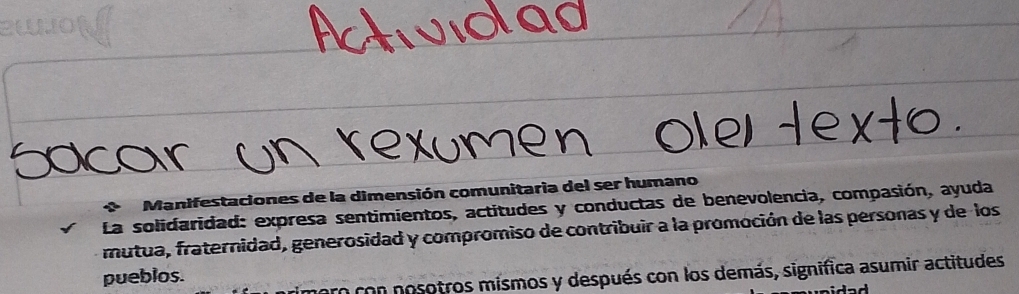 Actividad
sacar un rexumen del texto.
❖ Manifestaciones de la dimensión comunitaria del ser humano
✓ La solidaridad: expresa sentimientos, actitudes y conductas de benevolencia, compasión, ayuda
mutua, fraternidad, generosidad y compromiso de contribuir a la promoción de las personas y de los
pueblos.
con nosotros mismos y después con los demás, significa asumir actitudes